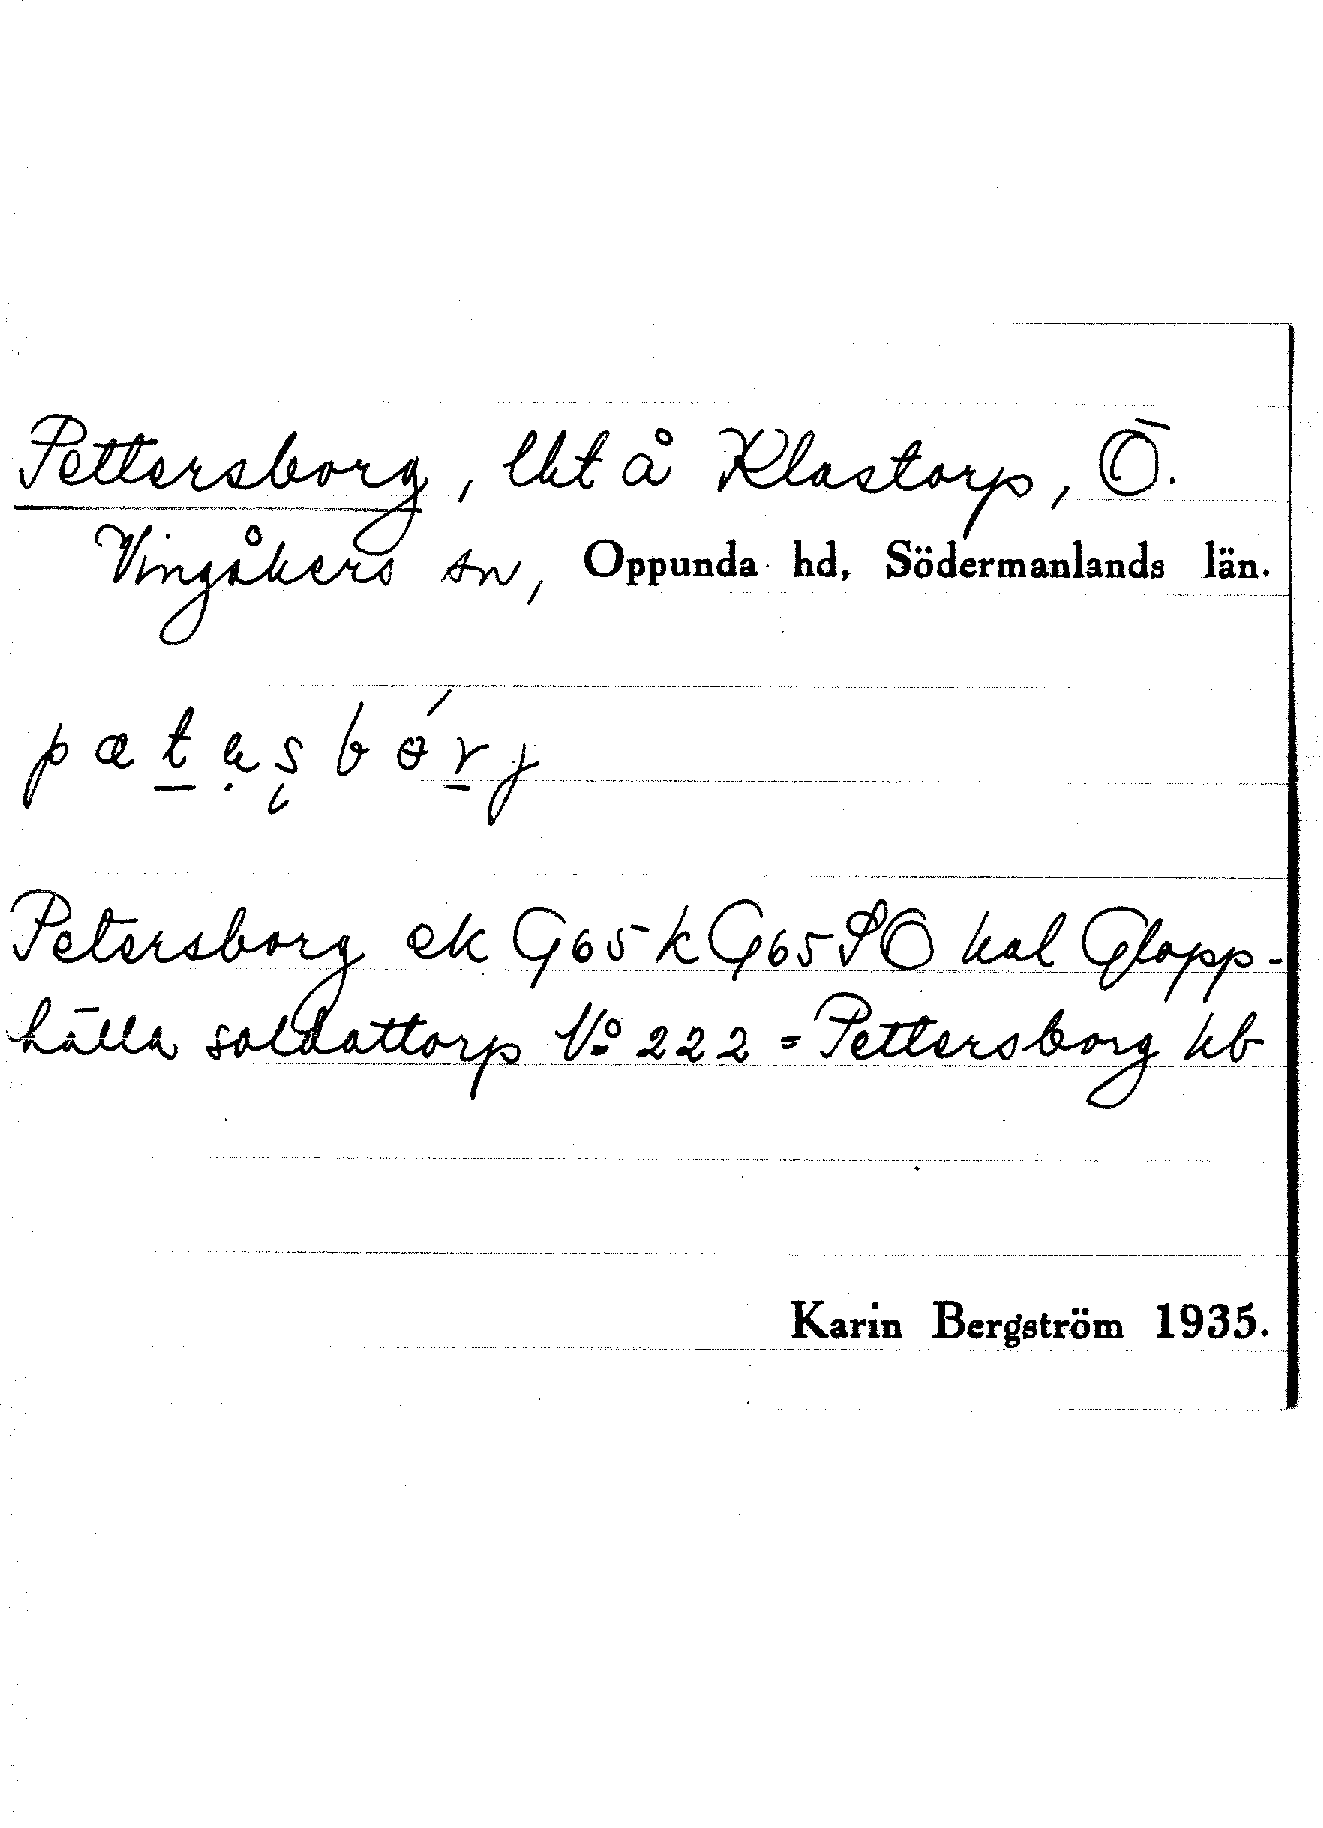 Pettersborg, lht å Klastorp, Ö.
Vingåkers sn, Oppunda hd, Södermanlands län.
pætɐsbórj
Petersborg ek G65 k G65SÖ hal Glopp-
hälla soldattorp No 222 = Pettersborg hb
Karin Bergström 1935.